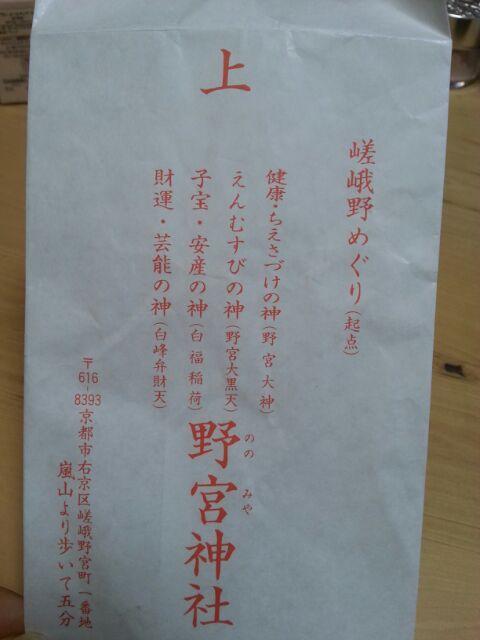 上
嵯峨野めぐり(起点)
健康・ちえさづけの神(野宮大神)
えんむすびの神(野宮大黒天)
子宝・安産の神(白福稲荷)
財運・芸能の神(白峰弁財天)
野宮神社
ののみや
〒616-8393京都市右京区嵯峨野宮町一番地
嵐山より歩いて五分